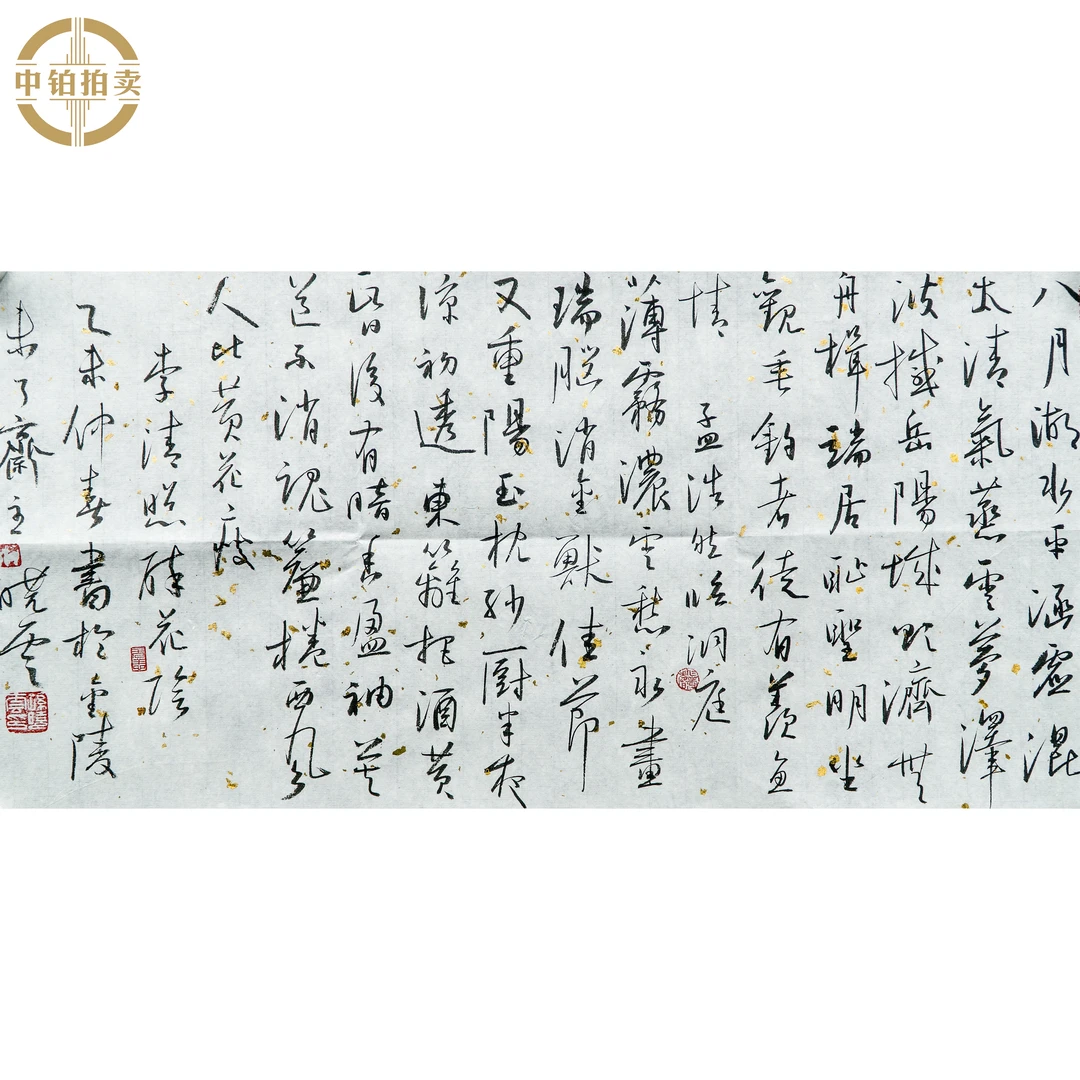 中铂拍卖
八月湖水平涵虛混
太清氣蒸雲夢澤
波撼岳陽城欲濟無
舟楫端居恥聖明坐
觀垂釣者徒有羨魚
情
孟浩然臨洞庭
薄霧濃雲愁永晝
瑞腦消金獸佳節
又重陽玉枕紗廚半夜
涼初透東籬把酒黃
昏後有暗香盈袖莫
道不消魂簾捲西風
人比黃花瘦
李清照醉花陰
乙未仲春書於金陵
未了齋主曉雲